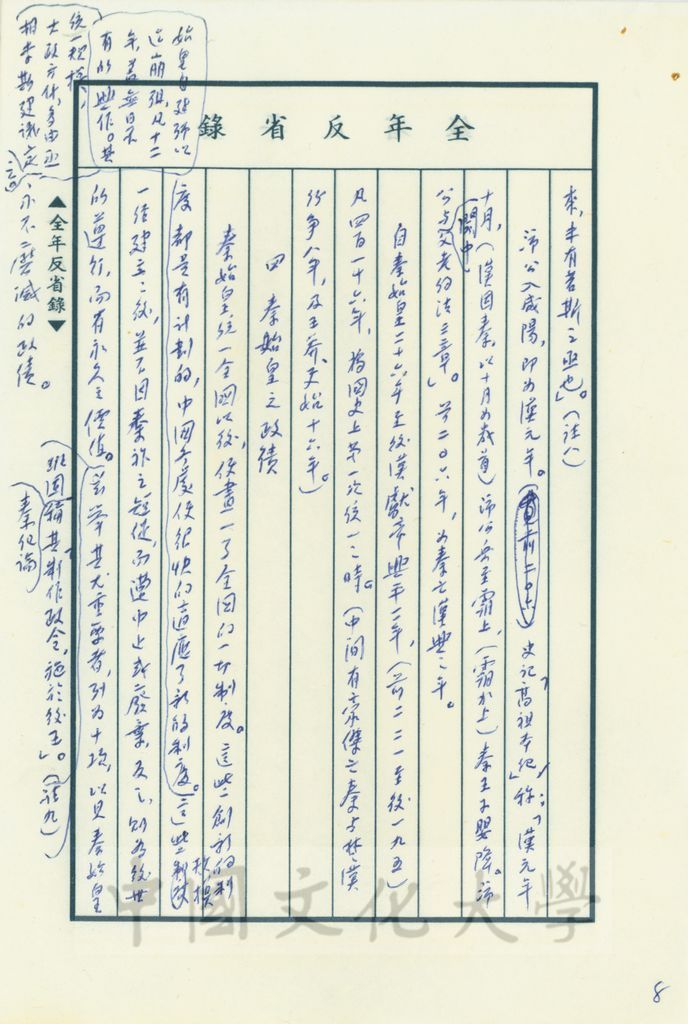 全年反省錄
來，未有若斯之亟也」。（註八）
沛公入咸陽，即為漢元年。 史記「高祖本紀」稱：「漢元年
十月，（漢因秦，以十月為歲首）沛公兵至霸上，（霸水上）秦王子嬰降。沛
公與父老約法三章」。 前二〇六年，為秦亡漢興之年。
（關中）
自秦始皇二十六年至後漢獻帝興平二年，（前二二一至後一九五）
凡四百一十六年，為國史上第一次統一之時。（中間有豪傑亡秦與楚漢
紛爭八年，及王莽更始十六年。）
四 秦始皇之政績
秦始皇統一全國以後，便畫一了全國的一切制度。這些創新的制
度都是有計劃的，中國各處便很快的適應了新的制度。這些制度
規模
一經建立之後，並不因秦祚之短促而遭中止或廢棄，反之，則為後世
的遵行，而有永久之價值。 茲舉其尤重要者，列為十項，以見秦始皇
始皇自建號以
迄崩殂，凡十二
年，蓋無日不
有所興作。其
統一規模，
大政方針，多由丞
相李斯建議定
之。
、亦不磨滅的政績。
（班固稱其制作政令，施於後王」。（註九）
秦紀論
▲全年反省錄▼
8
中國文化大學